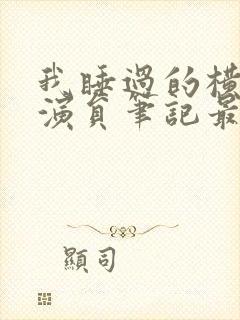 我睡過的橫
演員筆記最
顯司